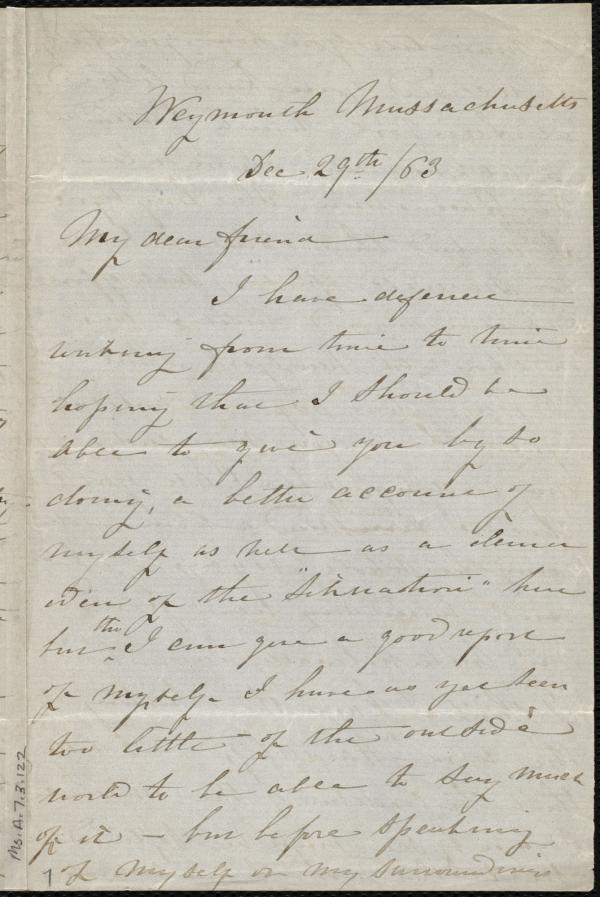 Weymouth Massachusetts
Dec 29th/63
My dear friend
I have deferred
writing from time to time
hoping that I should be
able to give you by so
doing, a better account of
myself as well as a clearer
idea of the "Situation" here
but tho I can give a good report
of myself I have as yet seen
too little of the outside
world to be able to say much
of it - but before speaking
of myself or my surroundings
Ms.A.7.3.122